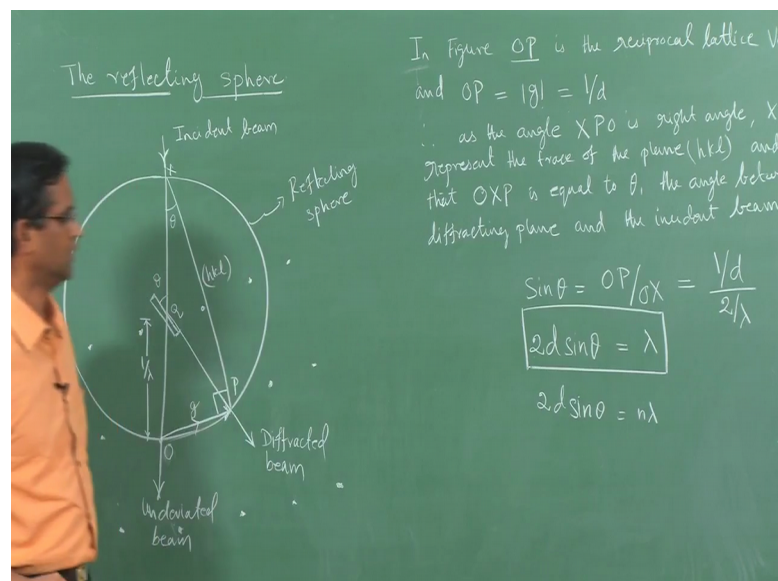 The reflecting sphere
Incident beam
X
θ
Reflecting
sphere
(hkl)
θ
a
1/λ
P
g
O
Diffracted
beam
Undeviated
beam
In Figure OP is the reciprocal lattice V
and OP = |g| = 1/d
∴ as the angle XPO is right angle, X
represent the trace of the plane (hkl) and
that OXP is equal to θ, the angle betwe
diffracting plane and the incident beam
Sinθ = OP/OX = 1/d / 2/λ
2d sinθ = λ
2d sinθ = nλ